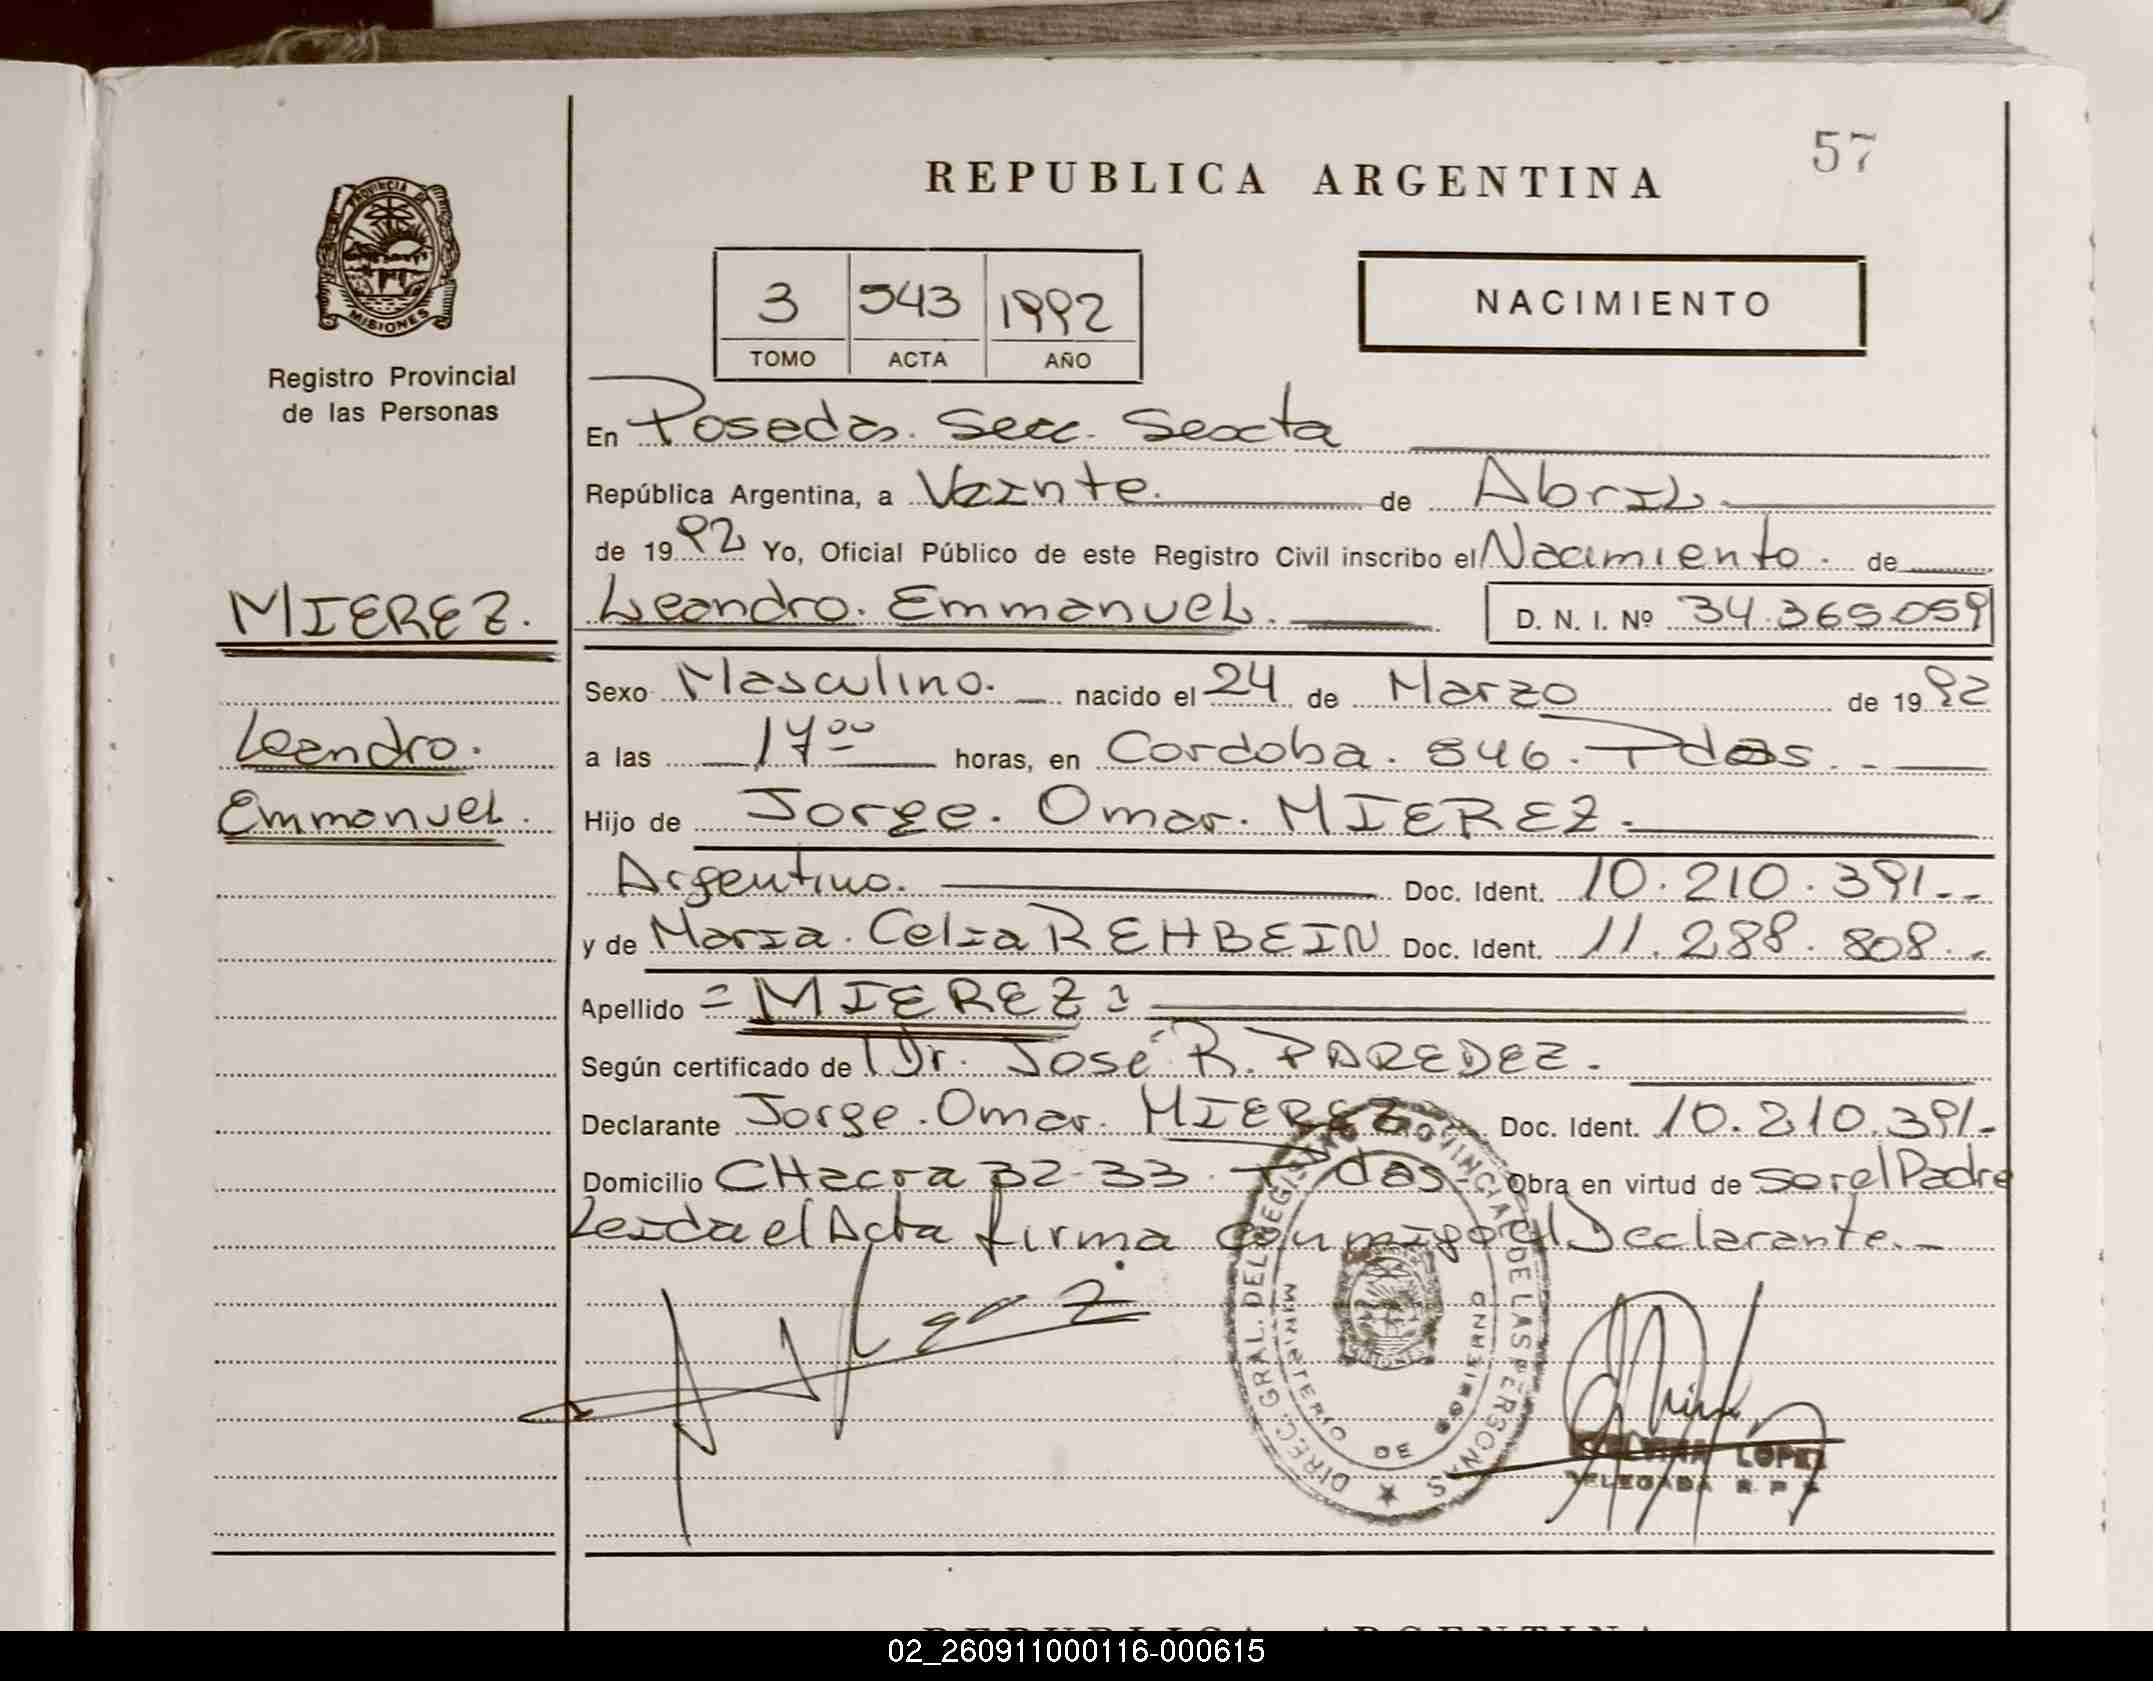 57
REPUBLICA ARGENTINA
PROVINCIA DE
MISIONES
Registro Provincial
de las Personas
3 543 1992
TOMO ACTA AÑO
NACIMIENTO
En Posadas. Secc. Sexta
República Argentina, a Veinte. de Abril
de 1992 Yo, Oficial Público de este Registro Civil inscribo el Nacimiento. de
MIEREZ.
Leandro.
Emmanuel.
Leandro. Emmanuel. D. N. I. Nº 34.365.059
Sexo Masculino. nacido el 24 de Marzo de 1992
a las 17⁰⁰ horas, en Cordoba. 846. Pdas.
Hijo de Jorge. Omar. MIEREZ.
Argentino. Doc. Ident. 10.210.391.-
y de Maria. Celia REHBEIN Doc. Ident. 11.288.808.-
Apellido = MIEREZ =
Según certificado de Dr. José R. PAREDEZ.
Declarante Jorge. Omar. MIEREZ Doc. Ident. 10.210.391.-
Domicilio CHacra 32-33. Pdas. Obra en virtud de ser el Padre
Leida el Acta firma conmigo el Declarante.-
DIREC. GRAL. DEL REGISTRO PROVINCIAL DE LAS PERSONAS
MINISTERIO DE GOBIERNO
MISIONES
LOPEZ
DELEGADA R. P. P.
REPUBLICA ARGENTINA
02_260911000116-000615